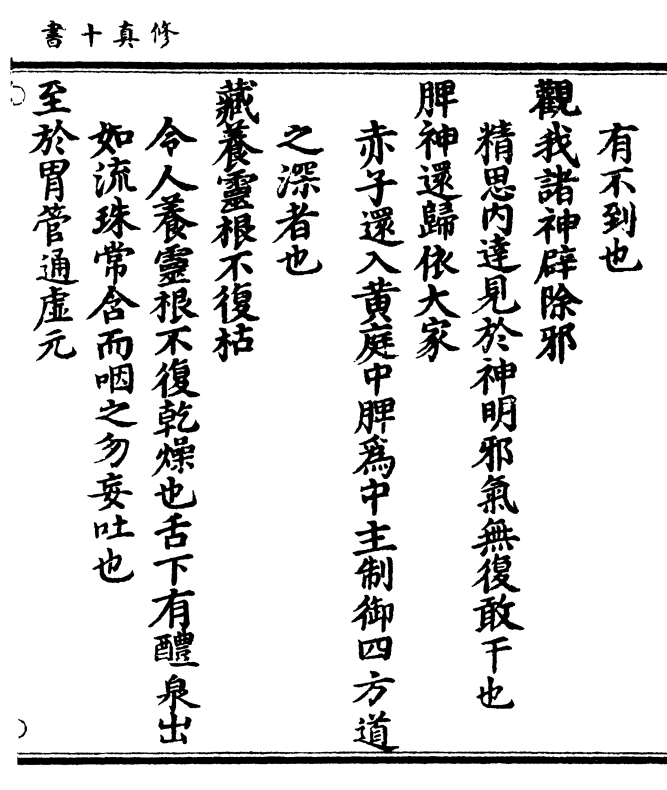 修真十書
有不到也
觀我諸神辟除邪
精思內達見於神明邪氣無復敢干也
脾神還歸依大家
赤子還入黄庭中脾爲中主制御四方道
之深者也
藏養靈根不復枯
令人養靈根不復乾燥也舌下有醴泉出
如流珠常含而咽之勿妄吐也
至於胃管通虛元